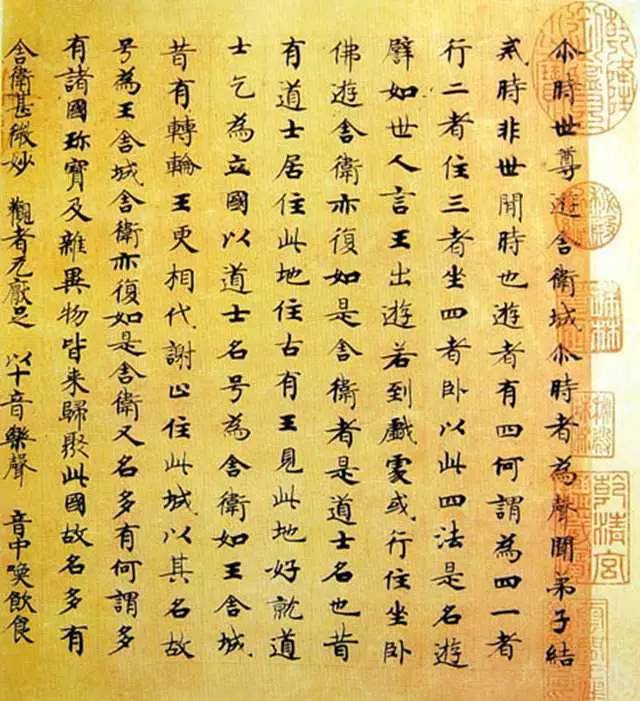 尒時世尊遊舍衛城尒時者為聲聞弟子結
戒時非世間時也遊者有四何謂為四一者
行二者住三者坐四者卧以此四法是名遊
譬如世人言王出遊若到戲處或行住坐卧
佛遊舍衛亦復如是舍衛者是道士名也昔
有道士居住此地住古有王見此地好就道
士乞為立國以道士名号為舍衛如王舍城
昔有轉輪王更相代謝止住此城以其名故
号為王舍城舍衛亦復如是舍衛又名多有何謂多
有諸國珎寶及雜異物皆来歸聚此國故名多有
舍衛甚微妙 觀者无厭足 以十音樂聲 音中喚飲食
乾清宮